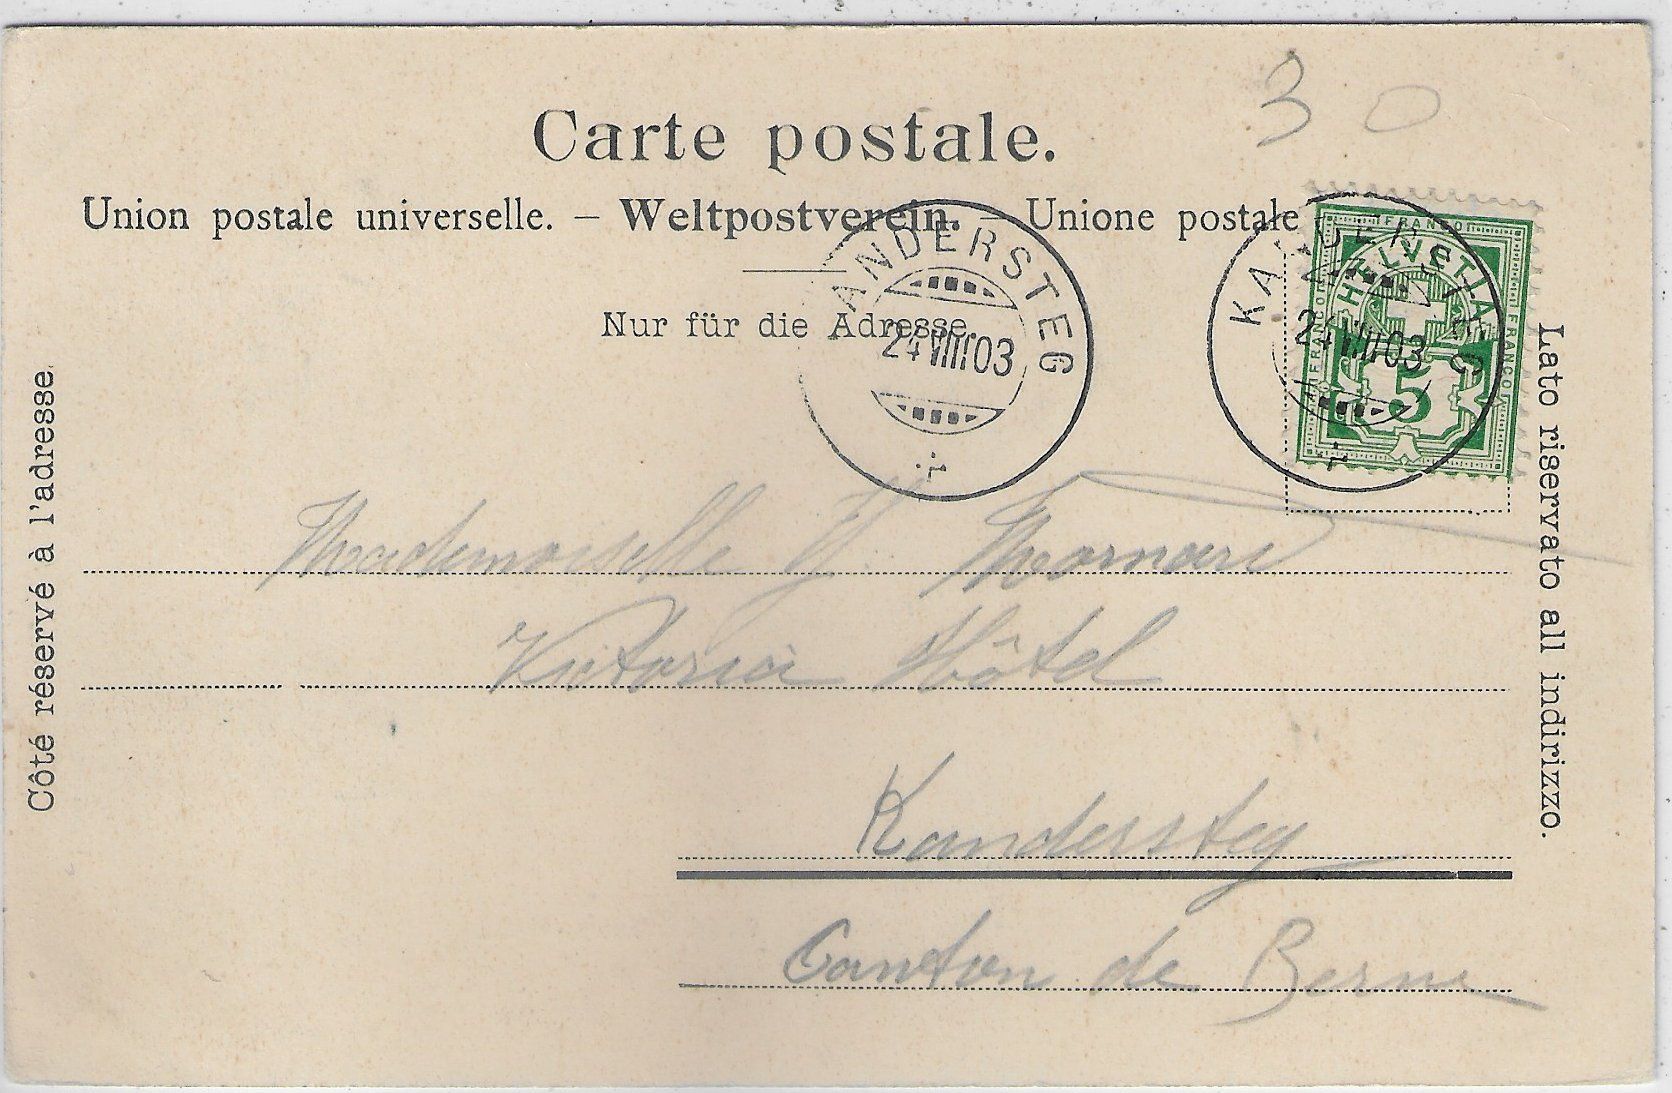 30
Carte postale.
Union postale universelle. – Weltpostverein. – Unione postale
Nur für die Adresse.
Côté réservé à l'adresse.
Lato riservato all indirizzo.
ANDERSTEG
24 VIII 03
KANDERSTEG
24 VIII 03
FRANCO
HELVETIA
5
Mademoiselle J.
Victoria Hôtel
Kandersteg
Canton de Berne